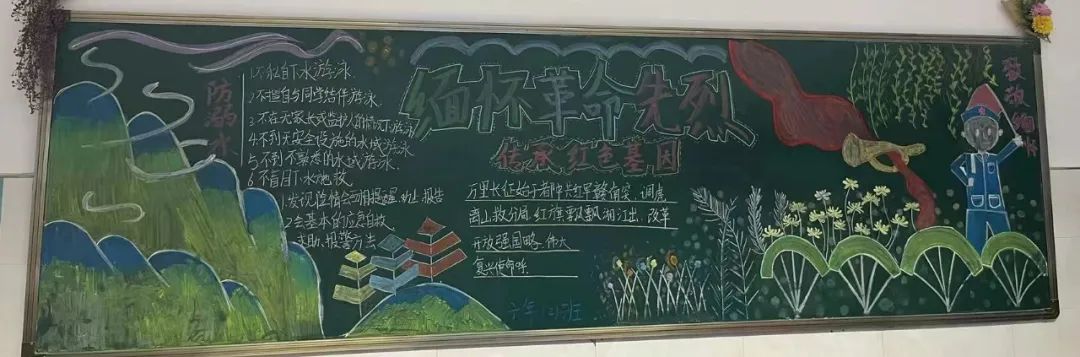 防溺水
1.不私自下水游泳.
2.不擅自与同学结伴游泳
3.不在无家长或监护人的情况下游泳
4.不到无安全设施的水域游泳
5.不到不熟悉的水域游泳.
6.不盲目下水施救.
1.发现险情会互相提醒、劝止、报告
2.会基本的应急自救
求助、报警方法
缅怀革命先烈
传承红色基因
万里长征始于都中共红军赣南突,调虎
离山救分局,红旗飘飘湘江出,改革
开放强国略,伟大
复兴使命呼.
六年(2)班
致敬缅怀